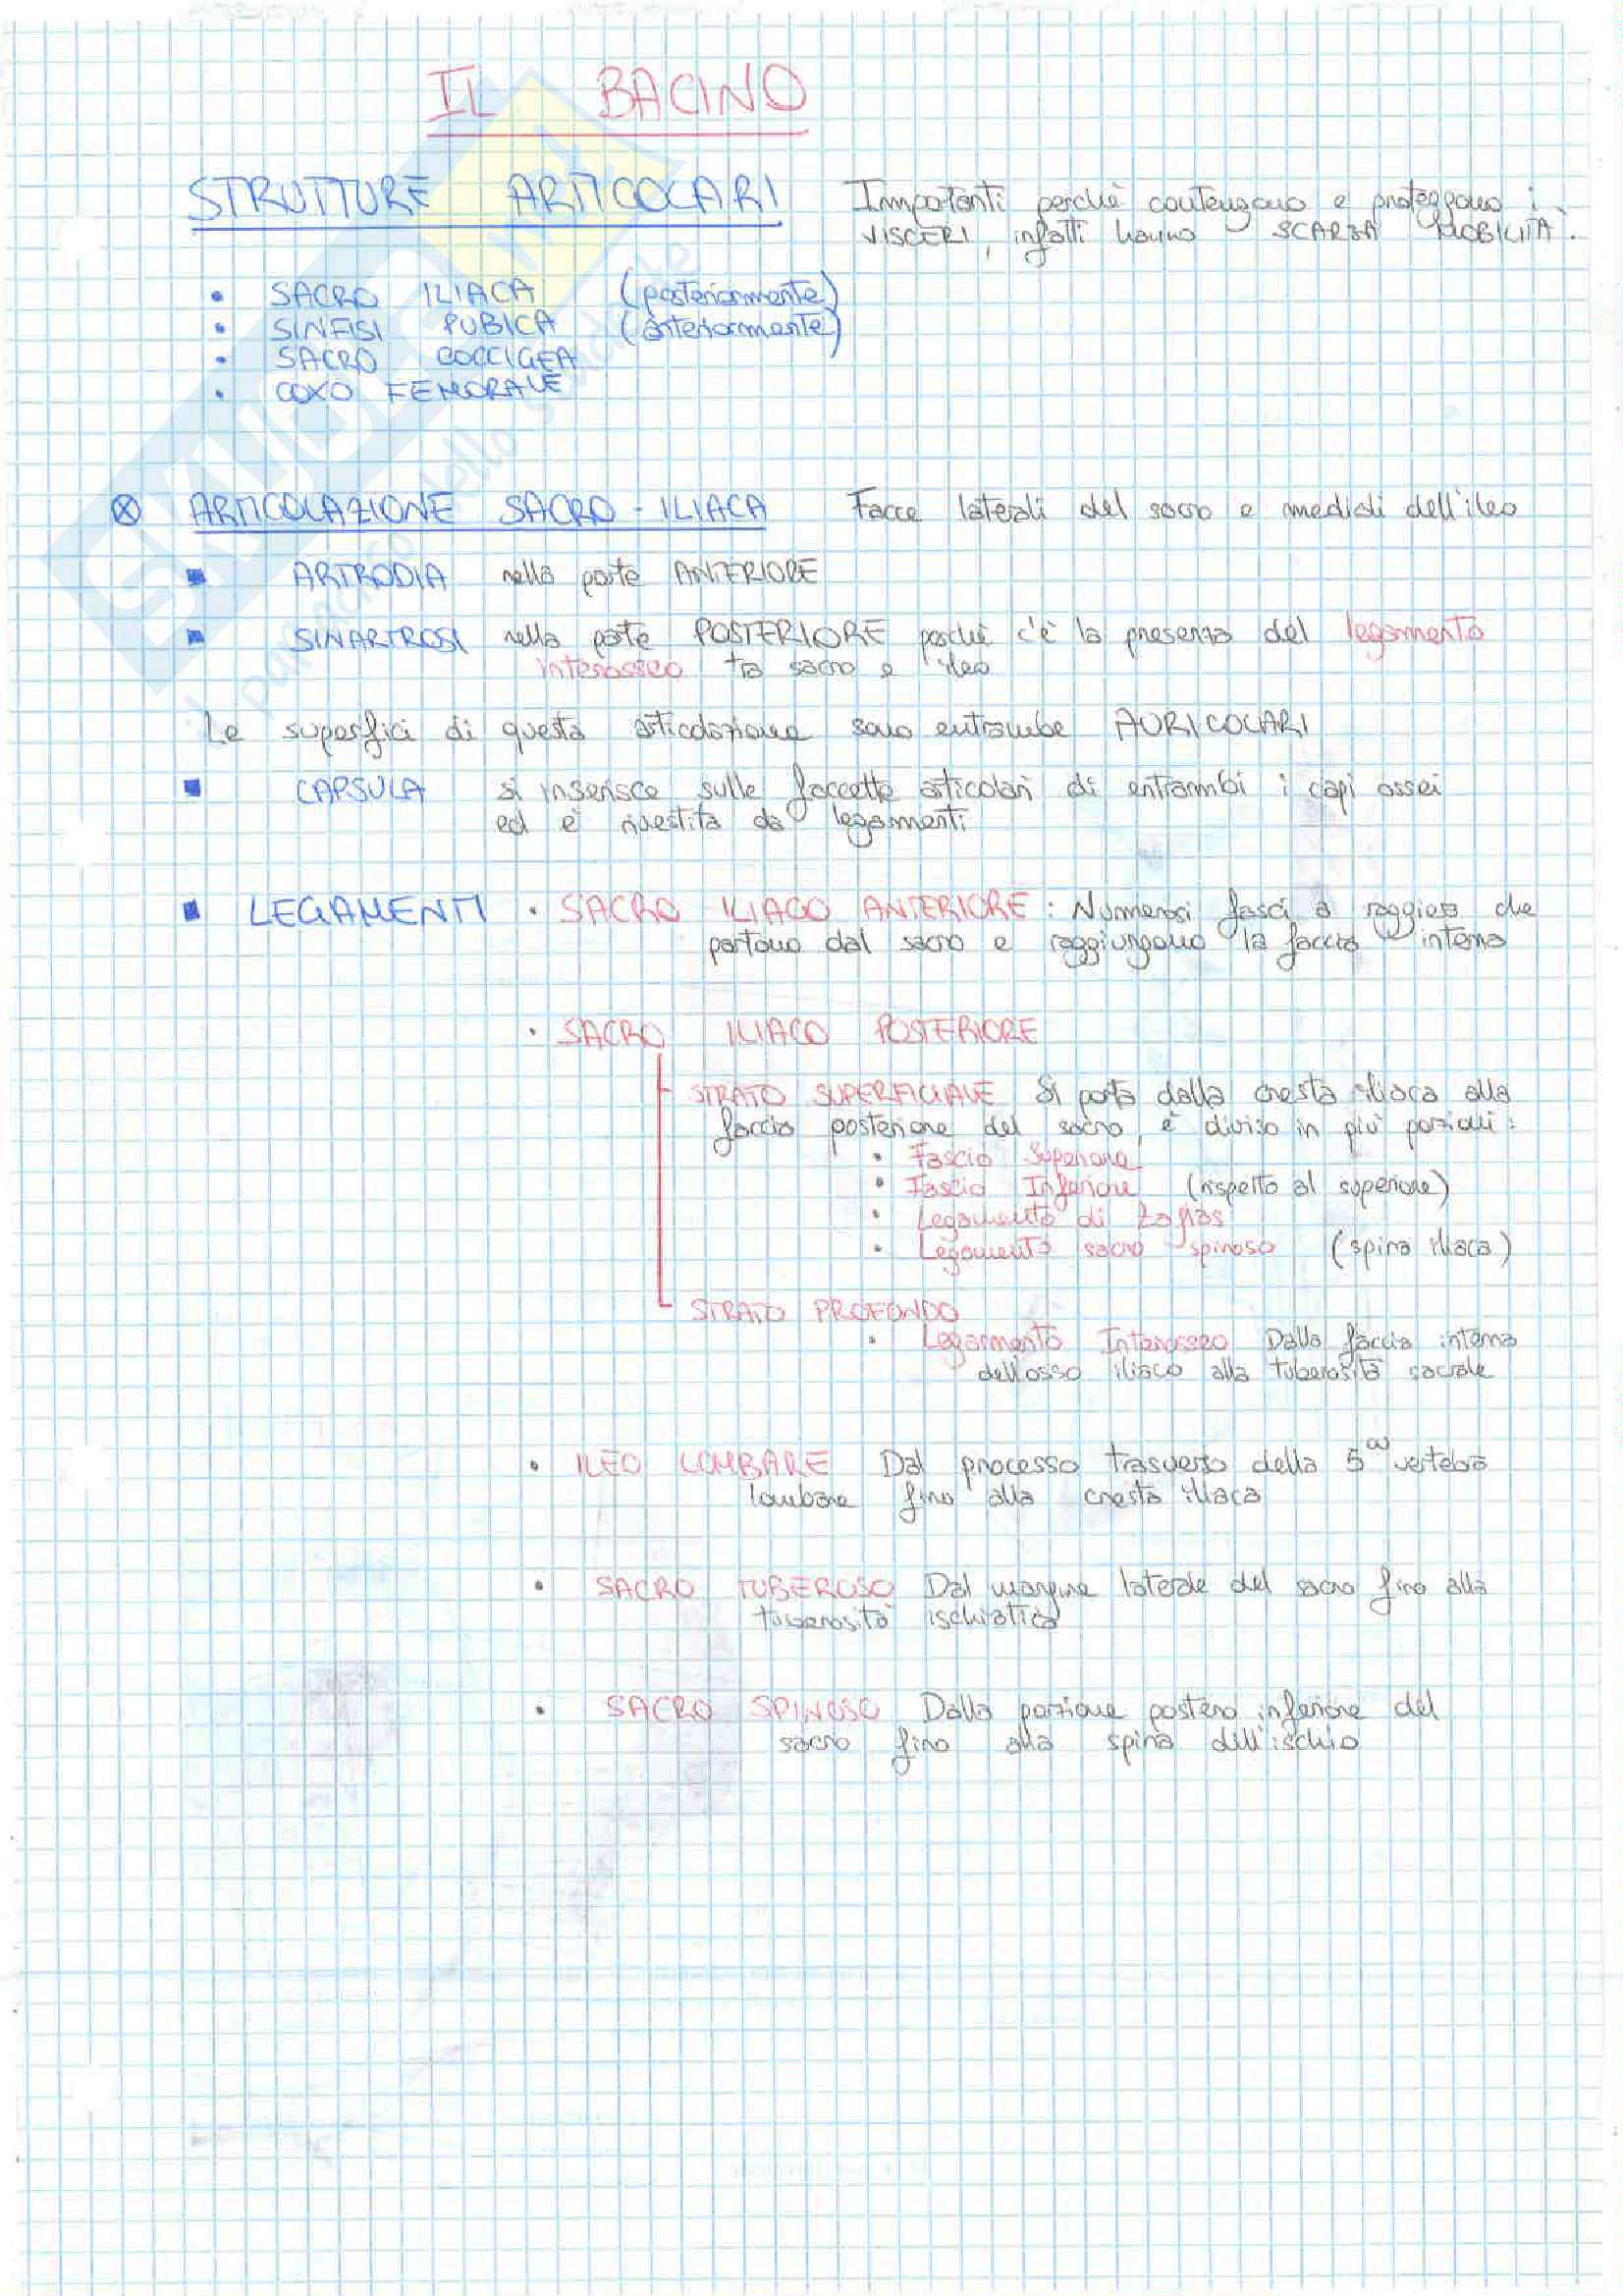 IL BACINO
STRUTTURE ARTICOLARI Importanti perchè contengono e proteggono i
VISCERI, infatti hanno SCARSA MOBILITÀ.
• SACRO ILIACA (posteriormente)
• SINFISI PUBICA (anteriormente)
• SACRO COCCIGEA
• COXO FEMORALE
⊗ ARTICOLAZIONE SACRO-ILIACA Facce laterali del sacro e mediali dell'ileo
▪ ARTRODIA nella parte ANTERIORE
▪ SINARTROSI nella parte POSTERIORE perchè c'è la presenza del legamento
interosseo tra sacro e ileo
Le superfici di questa articolazione sono entrambe AURICOLARI
▪ CAPSULA si inserisce sulle faccette articolari di entrambi i capi ossei
ed è rivestita da legamenti
▪ LEGAMENTI • SACRO ILIACO ANTERIORE: Numerosi fasci a raggiera che
partono dal sacro e raggiungono la faccia interna
• SACRO ILIACO POSTERIORE
STRATO SUPERFICIALE Si porta dalla cresta iliaca alla
faccia posteriore del sacro, è diviso in più porzioni:
• Fascio Superiore
• Fascio Inferiore (rispetto al superiore)
• Legamento di Zaglas
• Legamento sacro spinoso (spina iliaca)
STRATO PROFONDO
• Legamento Interosseo Dalla faccia interna
dell'osso iliaco alla tuberosità sacrale
• ILEO LOMBARE Dal processo trasverso della 5ª vertebra
lombare fino alla cresta iliaca
• SACRO TUBEROSO Dal margine laterale del sacro fino alla
tuberosità ischiatica
• SACRO SPINOSO Dalla porzione postero inferiore del
sacro fino alla spina dell'ischio